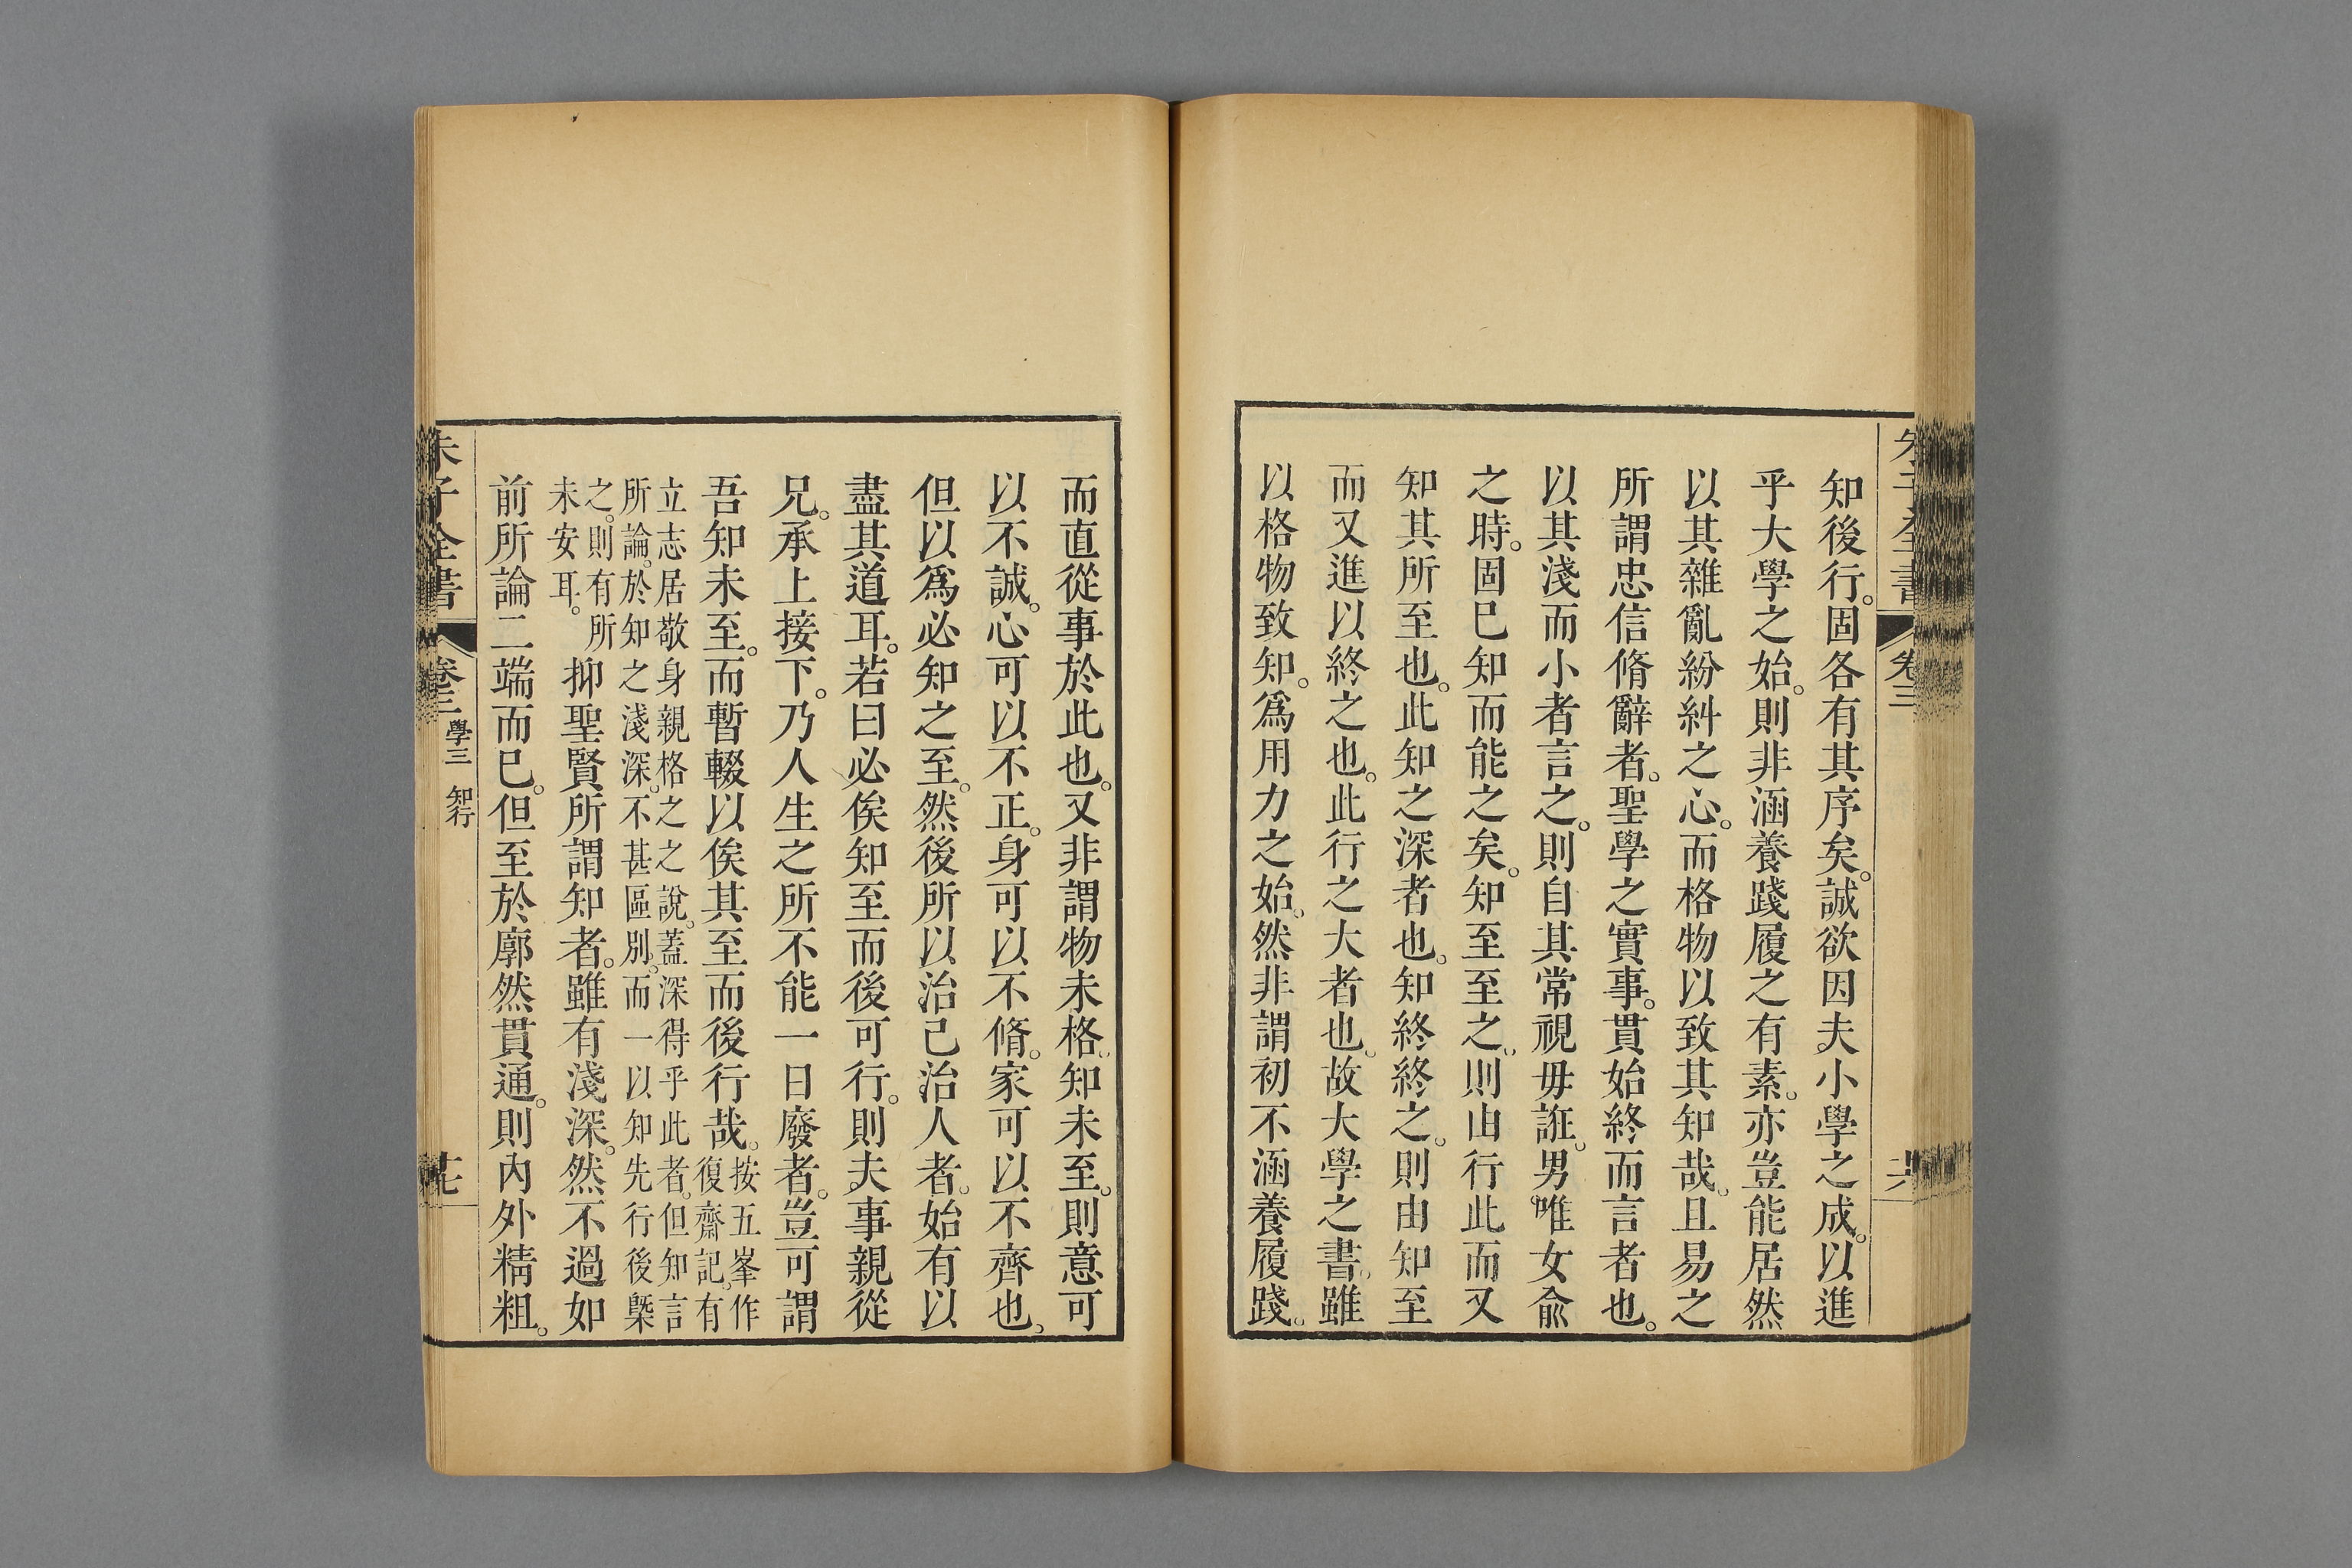 知後行。固各有其序矣。誠欲因夫小學之成。以進
乎大學之始。則非涵養踐履之有素。亦豈能居然
以其雜亂紛糾之心。而格物以致其知哉。且易之
所謂忠信脩辭者。聖學之實事。貫始終而言者也。
以其淺而小者言之。則自其常視毋誑。男唯女兪
之時。固已知而能之矣。知至至之。則由行此而又
知其所至也。此知之深者也。知終終之。則由知至
而又進以終之也。此行之大者也。故大學之書。雖
以格物致知。爲用力之始。然非謂初不涵養履踐。
朱子全書 卷三 十六
而直從事於此也。又非謂物未格。知未至。則意可
以不誠。心可以不正。身可以不脩。家可以不齊也。
但以爲必知之至。然後所以治己治人者。始有以
盡其道耳。若曰必俟知至而後可行。則夫事親從
兄。承上接下。乃人生之所不能一日廢者。豈可謂
吾知未至。而暫輟以俟其至而後行哉。
按五峯作
復齋記。有
立志居敬身親格之之說。蓋深得乎此者。但知言
所論。於知之淺深。不甚區別。而一以知先行後槩
之。則有所
未安耳。
抑聖賢所謂知者。雖有淺深。然不過如
前所論二端而已。但至於廓然貫通。則內外精粗。
朱子全書 卷三 學三 知行 十七